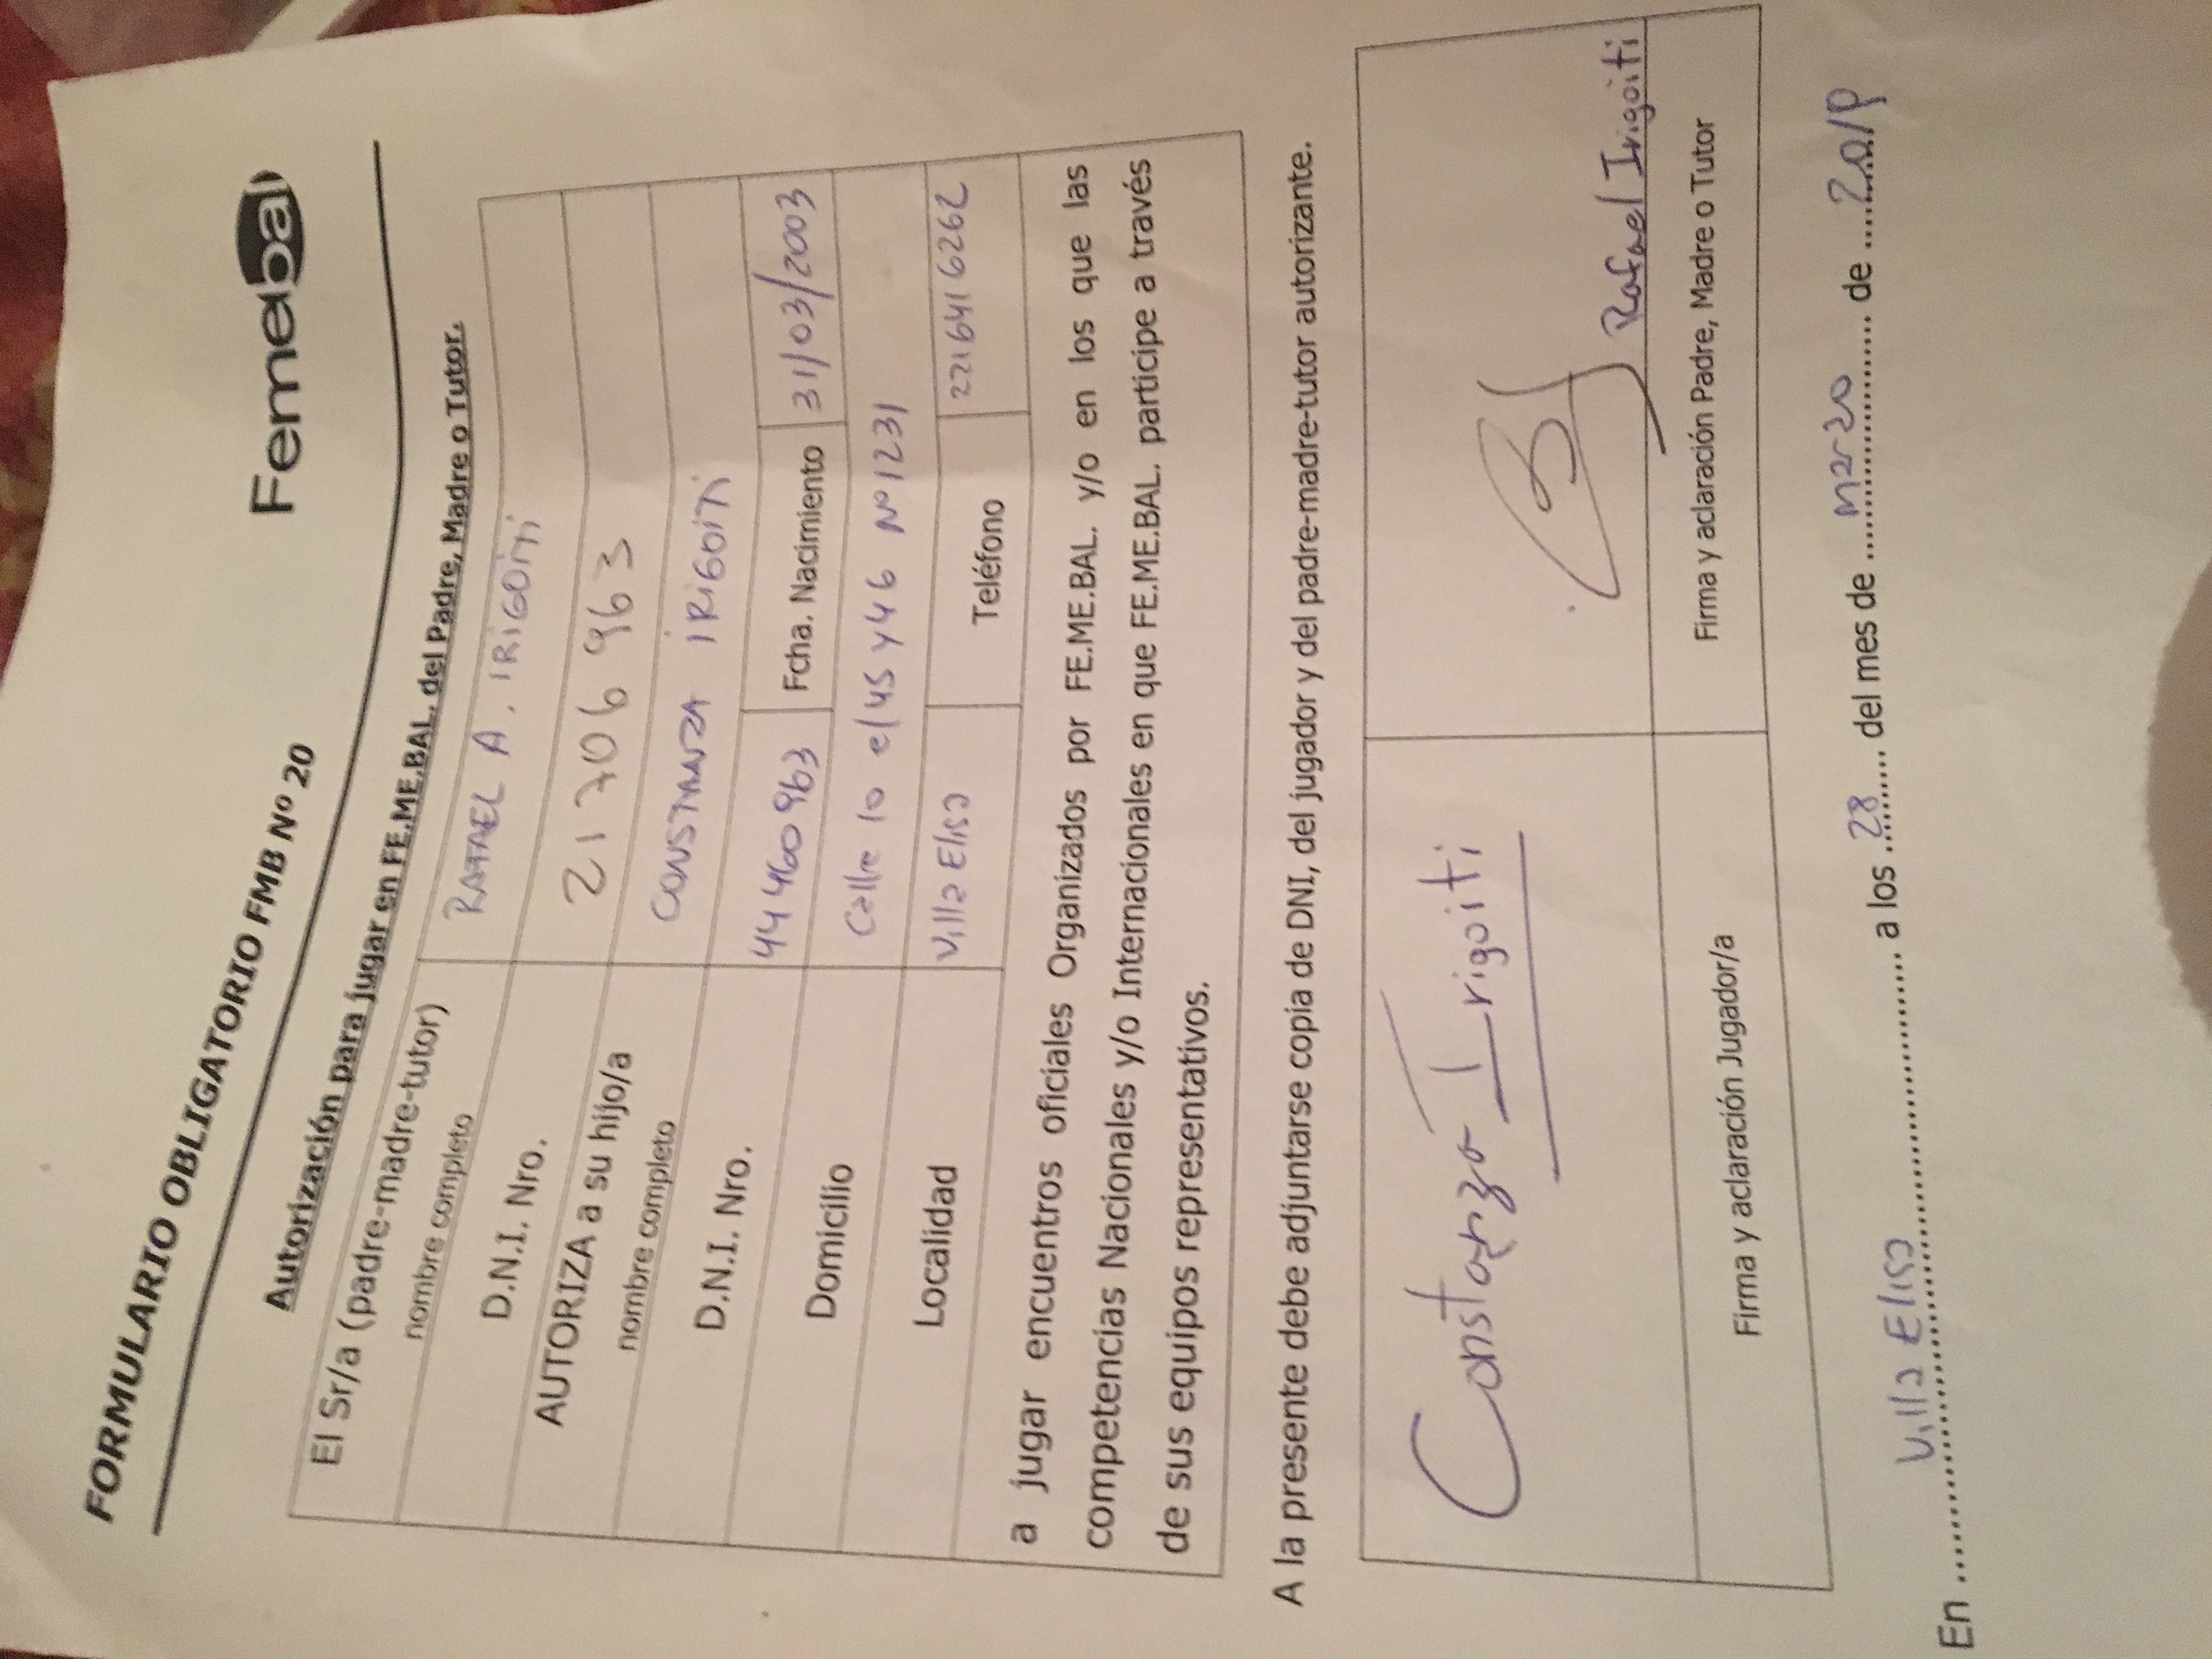 FORMULARIO OBLIGATORIO FMB Nº 20
Femebal
Autorización para jugar en FE.ME.BAL. del Padre, Madre o Tutor.
El Sr/a (padre-madre-tutor) nombre completo RAFAEL A. IRIGOITI
D.N.I. Nro. 21706963
AUTORIZA a su hijo/a nombre completo CONSTANZA IRIGOITI
D.N.I. Nro. 44460963 Fcha. Nacimiento 31/03/2003
Domicilio Calle 10 e/45 y 46 Nº 1231
Localidad Villa Elisa Teléfono 2216416262
a jugar encuentros oficiales Organizados por FE.ME.BAL. y/o en los que las
competencias Nacionales y/o Internacionales en que FE.ME.BAL. participe a través
de sus equipos representativos.
A la presente debe adjuntarse copia de DNI, del jugador y del padre-madre-tutor autorizante.
Constanza Irigoiti Rafael Irigoiti
Firma y aclaración Jugador/a Firma y aclaración Padre, Madre o Tutor
En Villa Elisa a los 28 del mes de marzo de